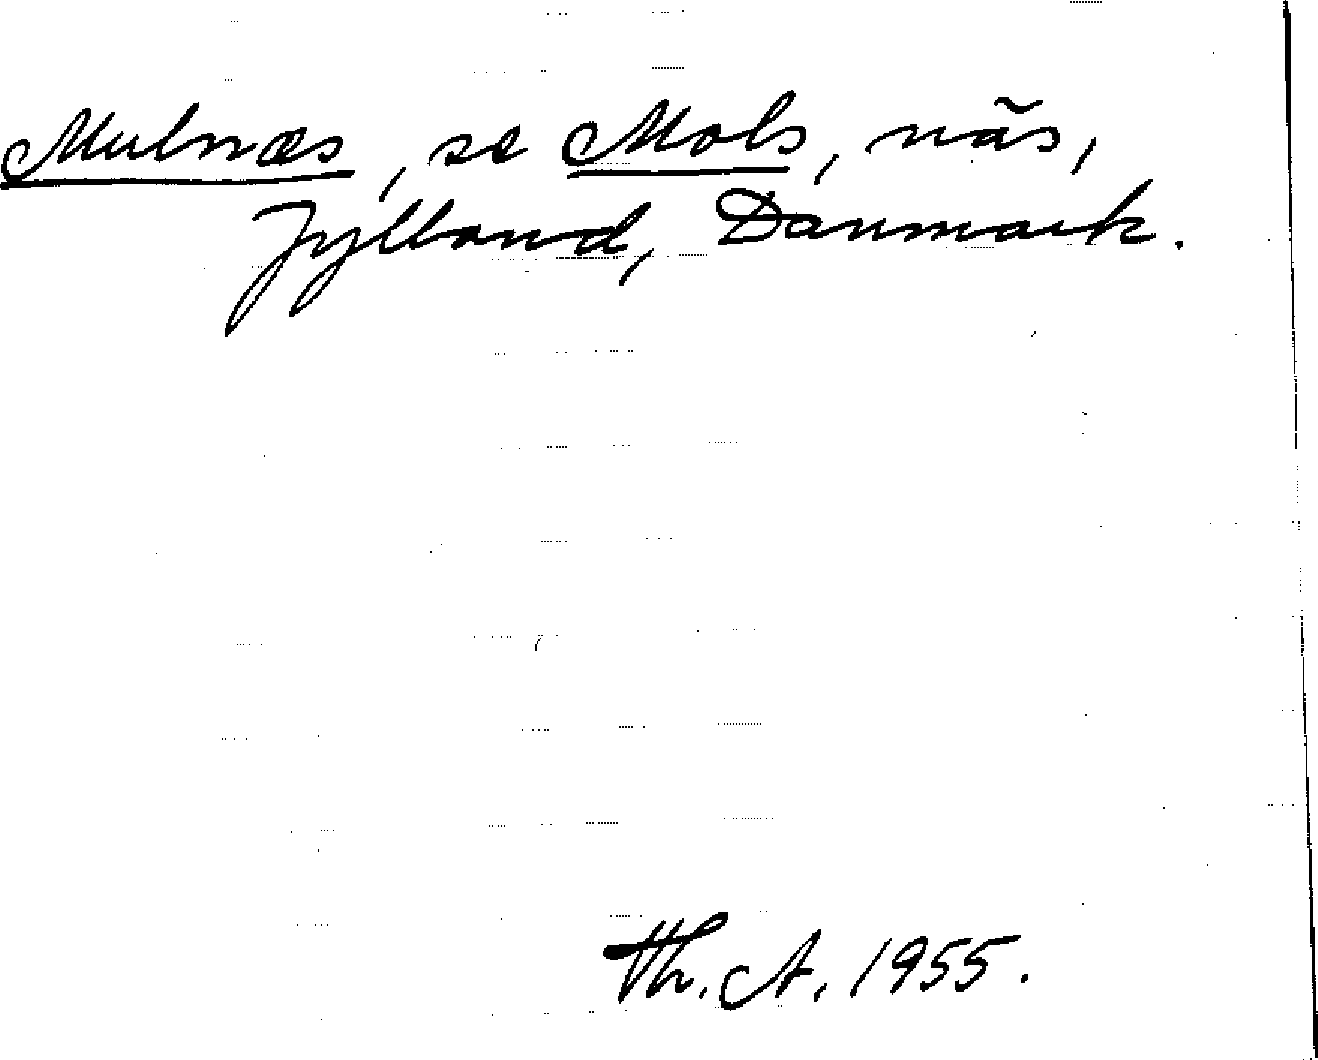 Mulnæs, se Mols, näs,
Jylland, Danmark.
Th. A. 1955.